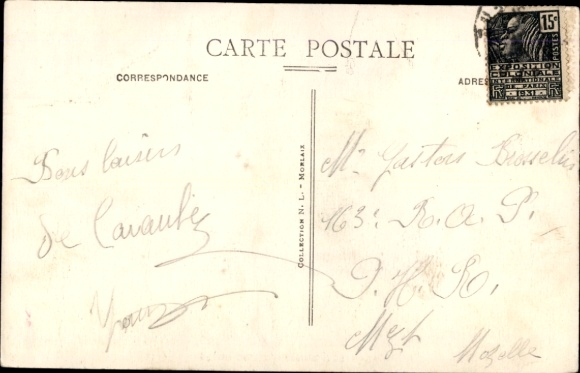 CARTE POSTALE
CORRESPONDANCE
ADRES
15c
POSTES
EXPOSITION
COLONIALE
INTERNATIONALE
DE PARIS
1931
COLLECTION N. L. - MORLAIX
Bons baisers
de
Mr Gaston
163e R. A. P.
Metz
Mozelle